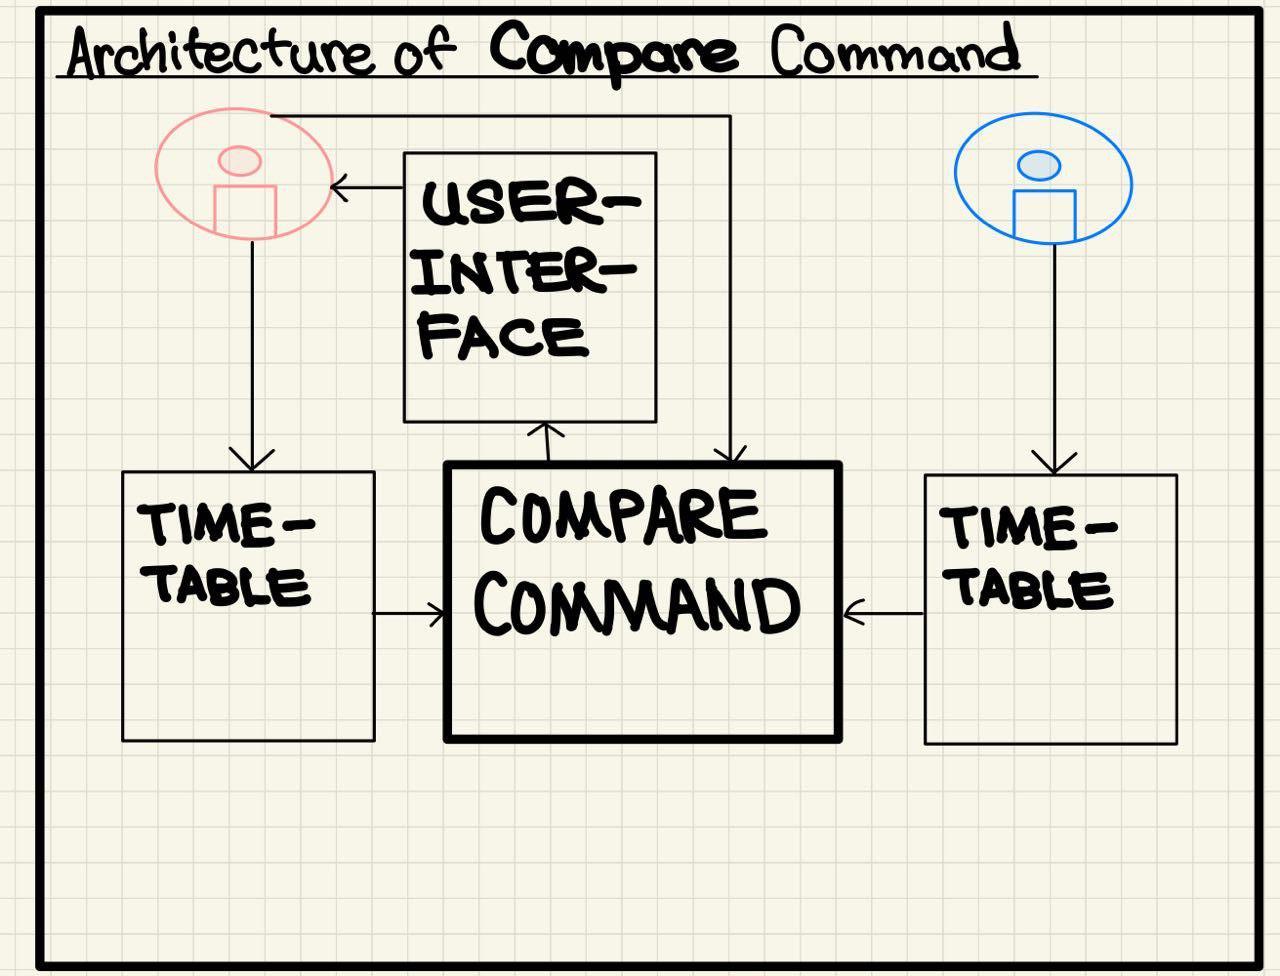 Architecture of Compare Command
USER-
INTER-
FACE
TIME-
TABLE
COMPARE
COMMAND
TIME-
TABLE